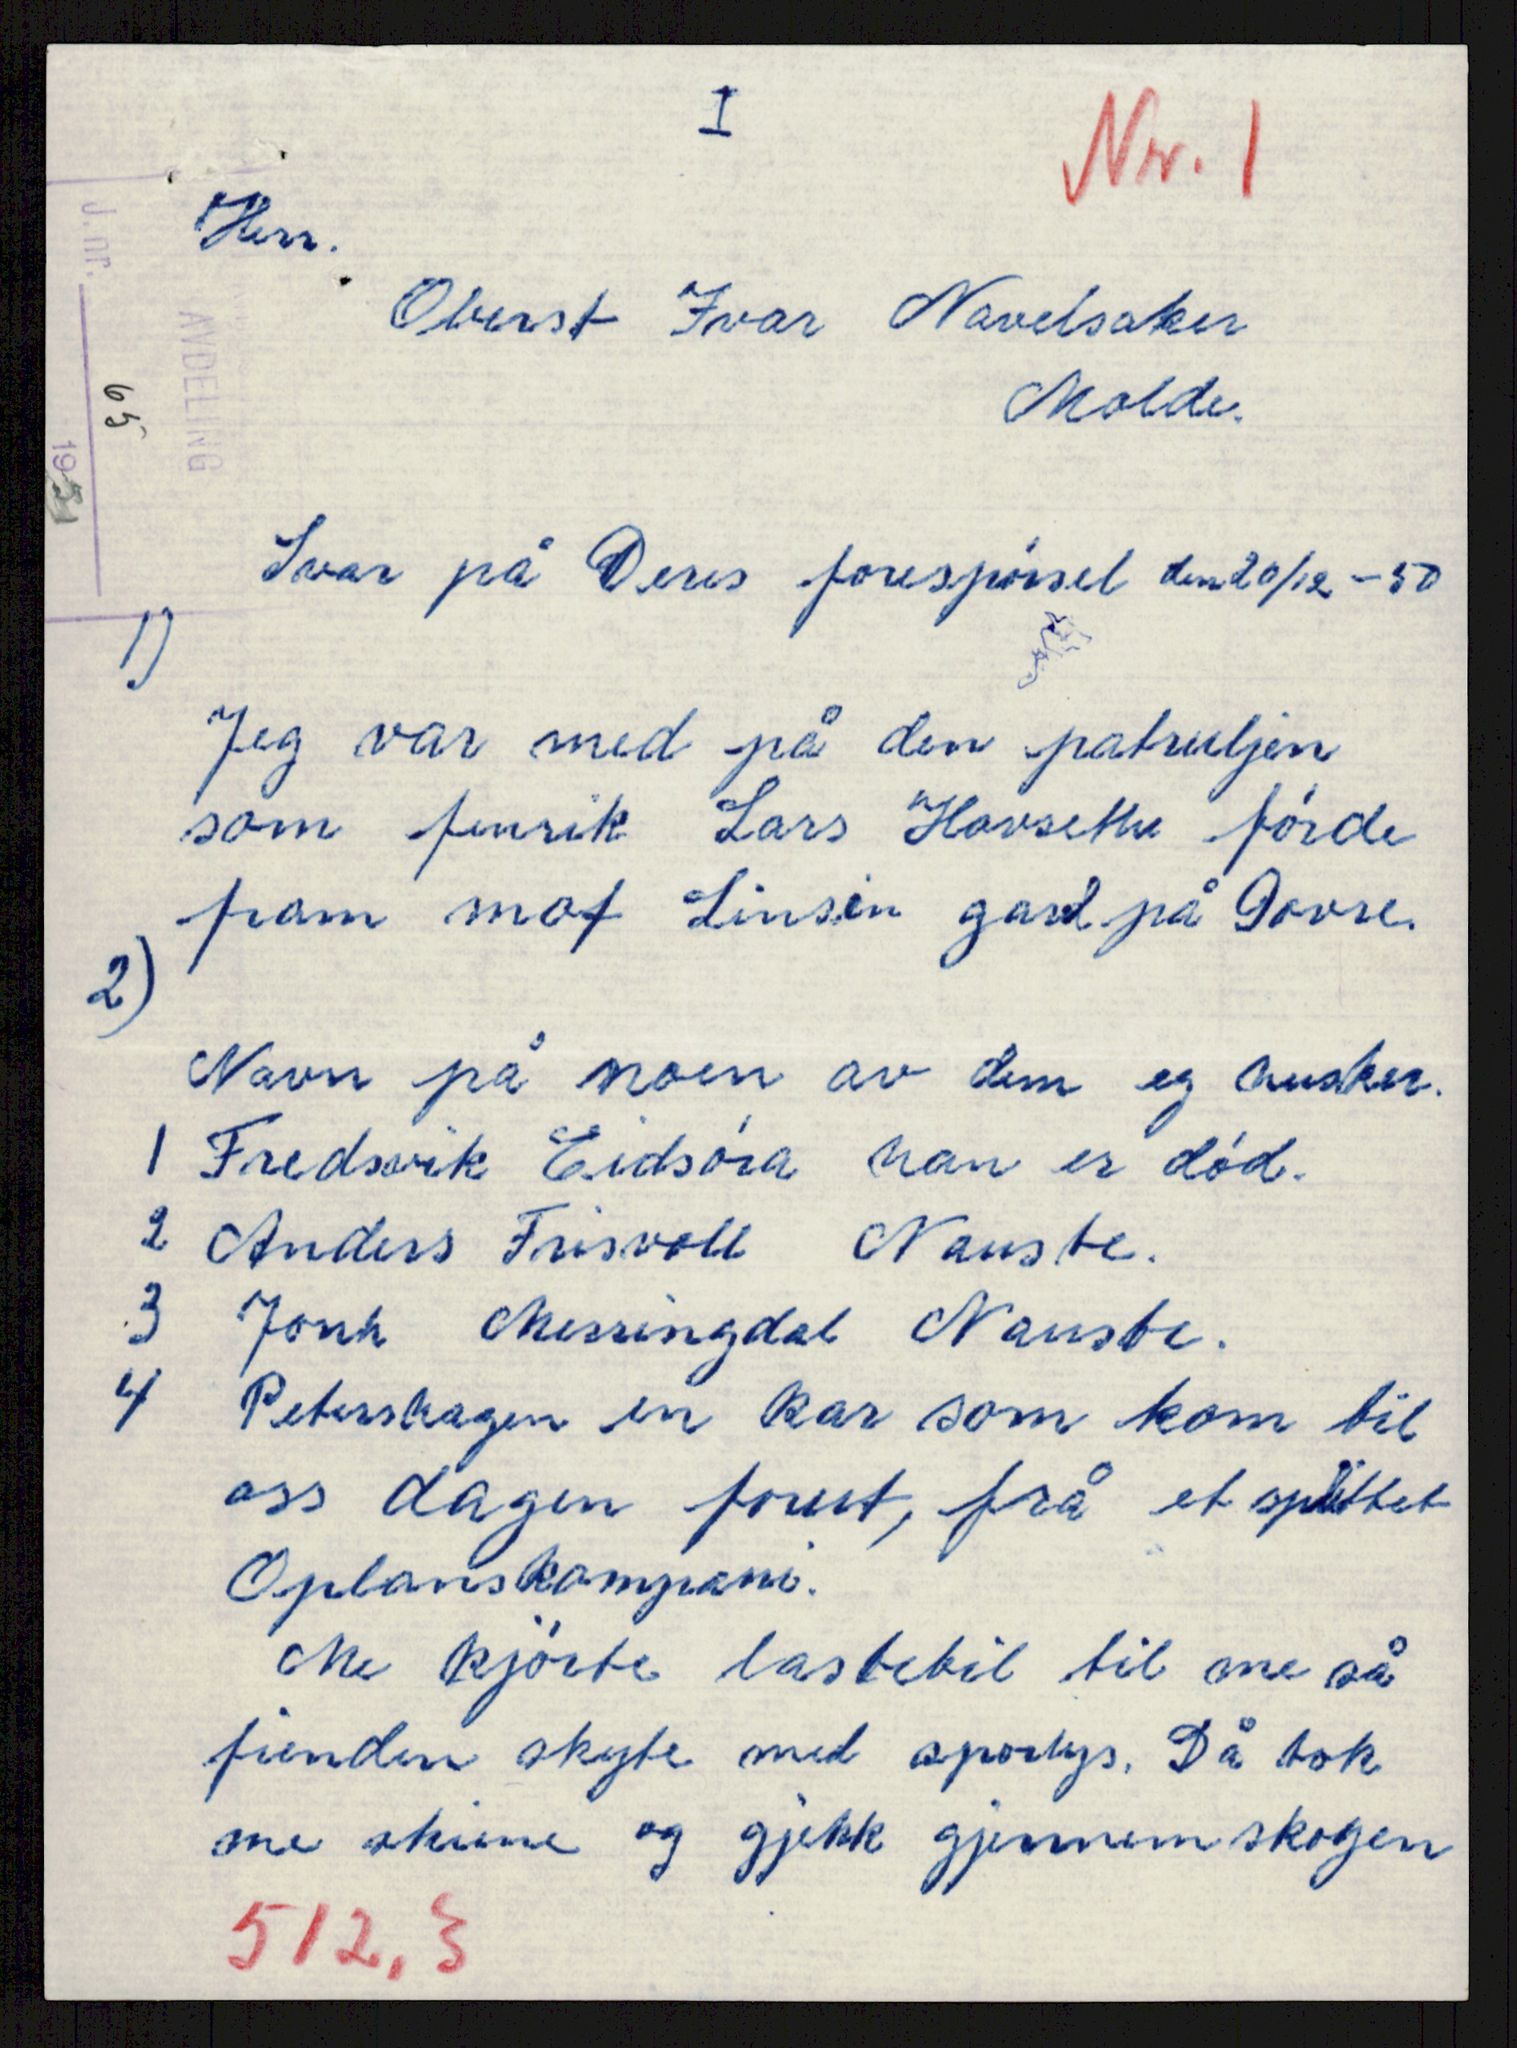 I
Nr. 1
Herr.
Oberst Ivar Navelsaker
Molde.
J. nr.
65
AVDELING
1951
Svar på Deres forespórsel den 20/12 - 50
1)
Jeg var med på den patruljen
som fenrik Lars Hovsethe fórde
fram mot Linsin gard på Dovre.
2)
Navn på noen av dem eg husker.
1 Fredsvik Eidsóra han er dód.
2 Anders Frisvoll Nauste.
3 Jonh Merringdal Nauste.
4 Petershagen en kar som kom til
oss dagen forut, frå et splittet
Oplanskompani.
Me kjórte lastebil til me så
fienden skyte med sporlys. Då tok
me skiene og gjekk gjennem skogen
512,3